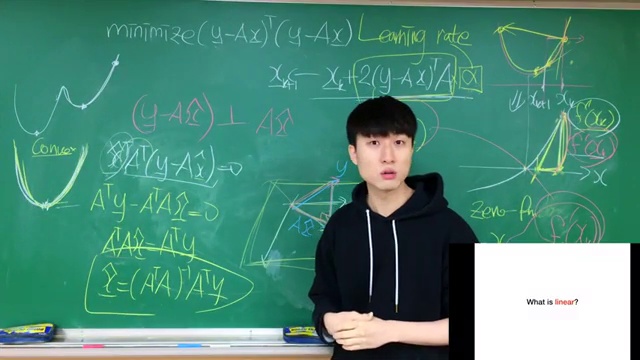 minimize (y-Ax)ᵀ(y-Ax)
Learning rate
x_{k+1} ← x_k + 2(y-Ax)ᵀA α
(y-Ax̂) ⊥ Ax̂
Convex
x̂ᵀAᵀ(y-Ax̂)=0
Aᵀy-AᵀAx̂=0
AᵀAx̂=Aᵀy
x̂=(AᵀA)⁻¹Aᵀy
y
Ax̂
x_{k+1} x_k
f'(x_k)
f(x_k)
x
zero-
f(x_k)
What is linear?